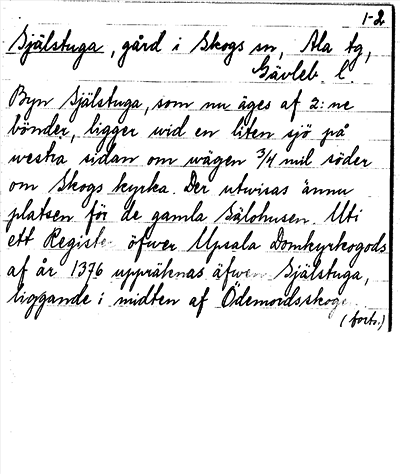 1-2
Själstuga, gård i Skogs sn, Ala tg,
Gävleb. l.
Byn Själstuga, som nu äges af 2:ne
bönder, ligger wid en liten sjö på
westra sidan om wägen 3/4 mil söder
om Skogs kyrka. Der utwisas ännu
platsen för de gamla Sälohusen. Uti
ett Register öfwer Upsala Domkyrkogods
af år 1376 uppräknas äfwen Själstuga,
liggande i midten af Ödemordsskoge
(forts.)